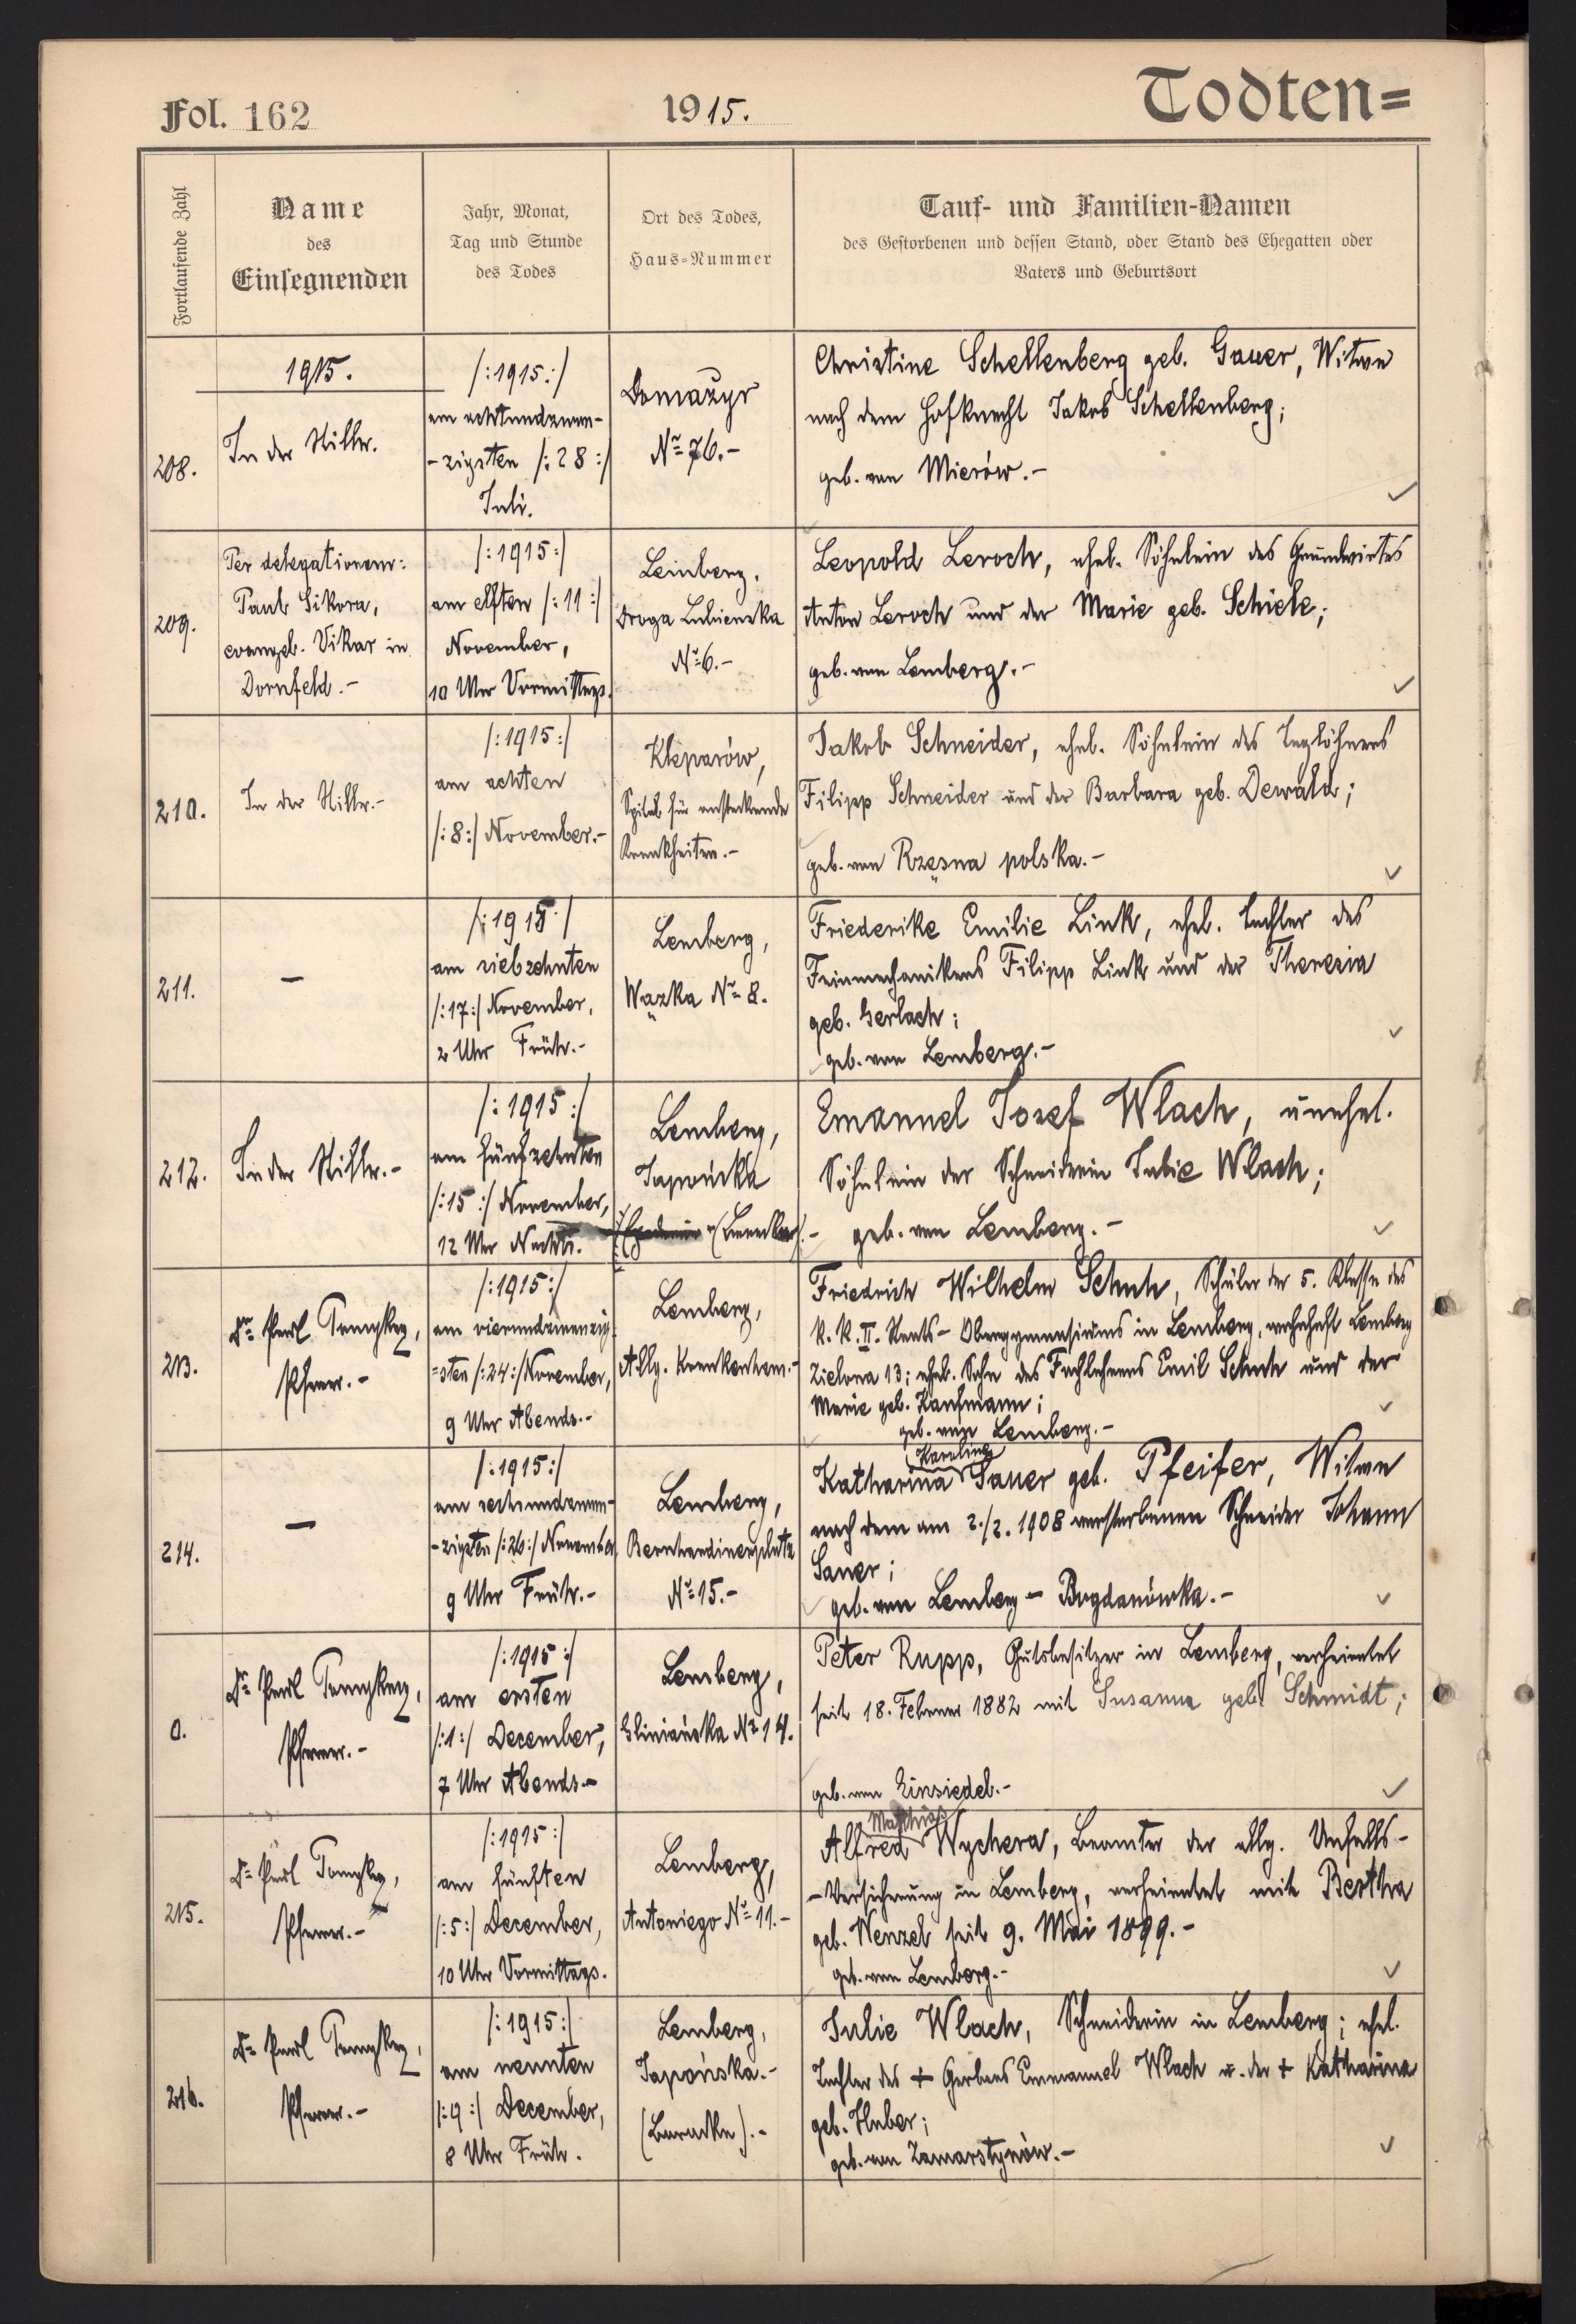 Fol. 162
1915.
Todten=
Fortlaufende Zahl
Name
des
Einsegnenden
Jahr, Monat,
Tag und Stunde
des Todes
Ort des Todes,
Haus-Nummer
Tauf- und Familien-Namen
des Gestorbenen und dessen Stand, oder Stand des Ehegatten oder
Vaters und Geburtsort
208.
1915.
In der Stille.
/:1915:/
am achtundzwan-
-zigsten /:28:/
Juli.
Domażyr
Nr 76.-
Christine Schellenberg geb. Gauer, Witwe
nach dem Hofknecht Jakob Schellenberg;
geb. von Mierów.-
209.
Per delegationem:
Paul Sikora,
evangel. Vikar in
Dornfeld.-
/:1915:/
am elften /:11:/
November,
10 Uhr Vormittags.
Lemberg.
Droga Lubienska
Nr 6.-
Leopold Leroch, ehel. Söhnlein des Grundwirtes
Anton Leroch und der Marie geb. Schick;
geb. von Lemberg.-
210.
In der Stille.-
/:1915:/
am achten
/:8:/ November.-
Kleparów,
Spital für ansteckende
Krankheiten.-
Jakob Schneider, ehel. Söhnlein des Taglöhners
Filipp Schneider und der Barbara geb. Dewald;
geb. von Rzęsna polska.-
211.
-
/:1915:/
am siebzehnten
/:17:/ November,
2 Uhr Früh.-
Lemberg,
Wązka Nr 8.
Friederike Emilie Link, ehel. Tochter des
Feinmechanikers Filipp Link und der Theresia
geb. Gerlach;
geb. von Lemberg.-
212.
In der Stille.-
/:1915:/
am fünfzehnten
/:15:/ November,
12 Uhr Nachts.
Lemberg,
Japońska
(Baracke).-
Emanuel Josef Wlach, unehel.
Söhnlein der Schneiderin Julie Wlach;
geb. von Lemberg.-
213.
Dr Paul
Pfarrer.-
/:1915:/
am vierundzwanzig-
=sten /:24:/ November,
9 Uhr Abends.-
Lemberg,
Allg. Krankenhaus.-
Friedrich Wilhelm Schuh, Schüler der 5. Klasse des
k.k. II. Staats-Obergymnasiums in Lemberg, wohnhaft Lemberg
Zielona 13; ehel. Sohn des Fachlehrers Emil Schuh und der
Marie geb. Kaufmann;
geb. von Lemberg.-
214.
-
/:1915:/
am sechsundzwan-
-zigsten /:26:/ November,
9 Uhr Früh.-
Lemberg,
Bernhardinerplatz
Nr 15.-
Karoline
Katharina Sauer geb. Pfeifer, Witwe
nach dem am 2./2. 1908 verstorbenen Schneider Johann
Sauer;
geb. von Lemberg - Bogdanówka.-
0.
Dr Paul
Pfarrer.-
/:1915:/
am ersten
/:1:/ December,
7 Uhr Abends.-
Lemberg,
Gliniańska Nr 14.
Peter Rupp, Gutsbesitzer in Lemberg, verheiratet
seit 18. Februar 1882 mit Susanna geb. Schmidt;
geb. von Einsiedel.-
215.
Dr Paul
Pfarrer.-
/:1915:/
am fünften
/:5:/ December,
10 Uhr Vormittags.
Lemberg,
Antoniego Nr 11.-
Matthias
Alfred Wychera, Beamter der allg. Unfalls-
-Versicherung in Lemberg, verheiratet mit Bertha
geb. Wenzel seit 9. Mai 1899.-
geb. von Lemberg.-
216.
Dr Paul
Pfarrer.-
/:1915:/
am neunten
/:9:/ December,
8 Uhr Früh.
Lemberg,
Japońska.-
(Baracke).-
Julie Wlach, Schneiderin in Lemberg; ehel.
Tochter des + Gerbers Emmanuel Wlach u. der + Katharina
geb. Huber;
geb. von Zamarstynów.-